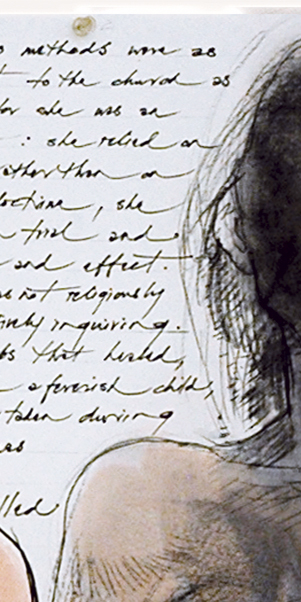 methods were as
to the church as
for she was an
: she relied on
rather than on
doctrine, she
trial and
and effect.
not religiously
inquiring.
that healed,
a feverish child,
taken during